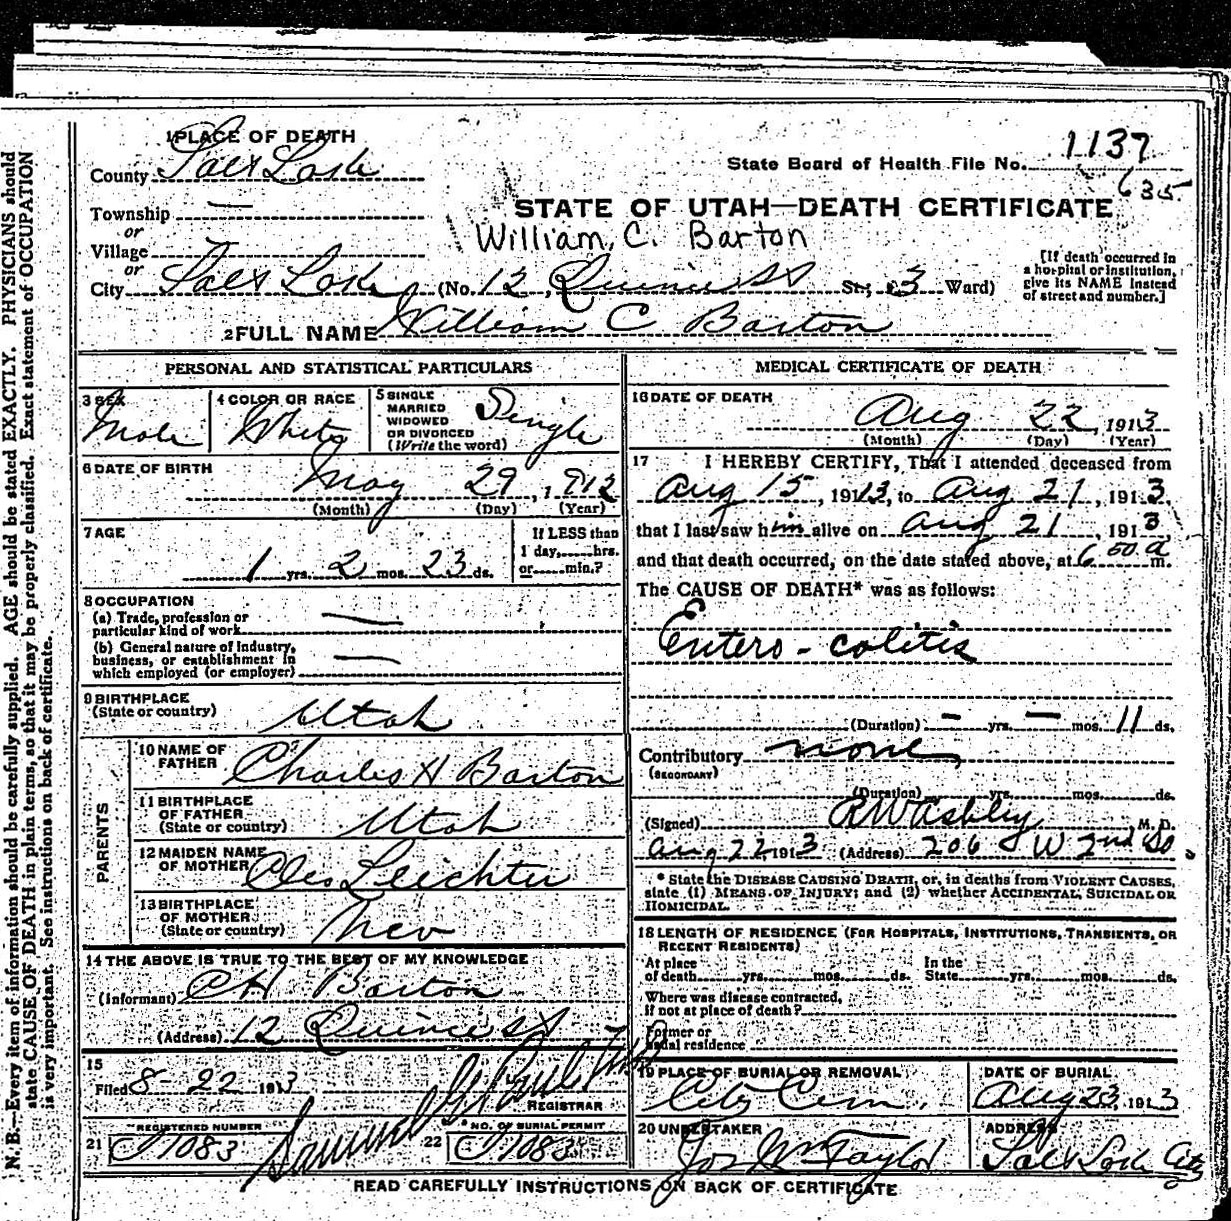 1 PLACE OF DEATH
County Salt Lake
State Board of Health File No. 1137
635
Township —
or
STATE OF UTAH—DEATH CERTIFICATE
William. C. Barton
Village
or
City Salt Lake (No. 12, Quince St St.; 3 Ward)
[If death occurred in a hospital or institution, give its NAME instead of street and number.]
2 FULL NAME William C Barton
PERSONAL AND STATISTICAL PARTICULARS
3 SEX Male
4 COLOR OR RACE White
5 SINGLE MARRIED WIDOWED OR DIVORCED (Write the word) Single
6 DATE OF BIRTH May 29, 1912
(Month) (Day) (Year)
7 AGE 1 yrs. 2 mos. 23 ds.
If LESS than 1 day,......hrs. or......min.?
8 OCCUPATION
(a) Trade, profession or particular kind of work —
(b) General nature of Industry, business, or establishment in which employed (or employer) —
9 BIRTHPLACE (State or country) Utah
PARENTS
10 NAME OF FATHER Charles H Barton
11 BIRTHPLACE OF FATHER (State or country) Utah
12 MAIDEN NAME OF MOTHER Leichter
13 BIRTHPLACE OF MOTHER (State or country) Nev
14 THE ABOVE IS TRUE TO THE BEST OF MY KNOWLEDGE
(Informant) CH Barton
(Address) 12 Quince St
15
Filed 8-22 1913
Samuel G Paul
REGISTRAR
21 REGISTERED NUMBER 1083
22 NO. OF BURIAL PERMIT 1083
MEDICAL CERTIFICATE OF DEATH
16 DATE OF DEATH
Aug 22, 1913
(Month) (Day) (Year)
17 I HEREBY CERTIFY, That I attended deceased from
Aug 15, 1913, to Aug 21, 1913.
that I last saw him alive on Aug 21, 1913
and that death occurred, on the date stated above, at 6 50 a m.
The CAUSE OF DEATH* was as follows:
Entero-colitis
(Duration) — yrs. — mos. 11 ds.
Contributory none
(SECONDARY)
(Duration) yrs. mos. ds.
(Signed) R W Ashley M. D.
Aug 22 1913 (Address) 206 W 2nd So.
* State the DISEASE CAUSING DEATH, or, in deaths from VIOLENT CAUSES, state (1) MEANS OF INJURY; and (2) whether ACCIDENTAL, SUICIDAL OR HOMICIDAL.
18 LENGTH OF RESIDENCE (FOR HOSPITALS, INSTITUTIONS, TRANSIENTS, OR RECENT RESIDENTS)
At place of death yrs. mos. ds. In the State yrs. mos. ds.
Where was disease contracted, if not at place of death?
Former or usual residence
19 PLACE OF BURIAL OR REMOVAL City Cem.
DATE OF BURIAL Aug 23, 1913
20 UNDERTAKER Jos Wm Taylor
ADDRESS Salt Lake City
READ CAREFULLY INSTRUCTIONS ON BACK OF CERTIFICATE
N. B.—Every item of information should be carefully supplied. AGE should be stated EXACTLY. PHYSICIANS should
state CAUSE OF DEATH in plain terms, so that it may be properly classified. Exact statement of OCCUPATION
is very important. See instructions on back of certificate.